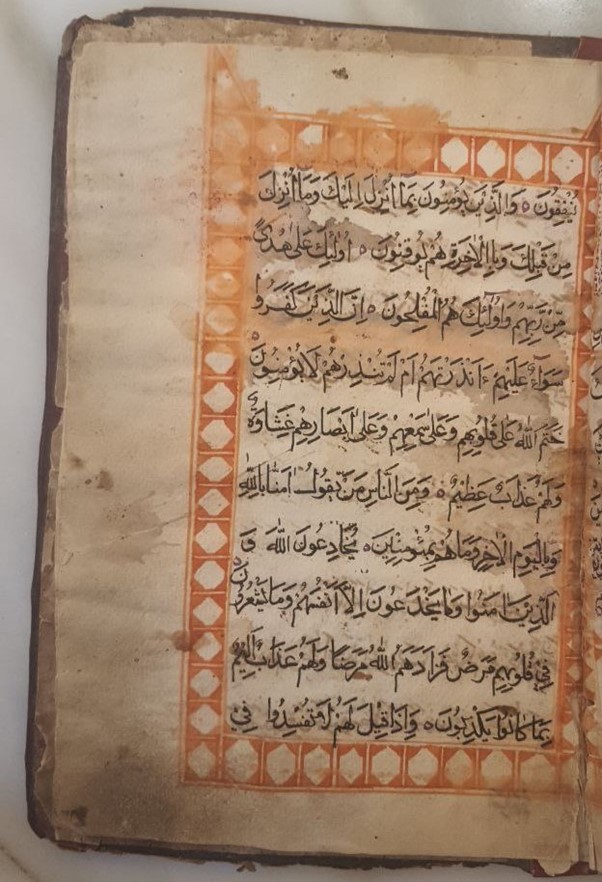 يُنْفِقُونَ ٥ وَالَّذِيْنَ يُؤْمِنُونَ بِمَا أُنْزِلَ إِلَيْكَ وَمَا أُنْزِلَ
مِنْ قَبْلِكَ وَبِالْاٰخِرَةِ هُمْ يُوقِنُونَ ٥ اُولٰئِكَ عَلٰى هُدًى
مِّنْ رَّبِّهِمْ وَاُولٰئِكَ هُمُ الْمُفْلِحُونَ ٥ اِنَّ الَّذِيْنَ كَفَرُوا
سَوَآءٌ عَلَيْهِمْ ءَاَنْذَرْتَهُمْ اَمْ لَمْ تُنْذِرْهُمْ لَا يُؤْمِنُونَ ٥
خَتَمَ اللّٰهُ عَلٰى قُلُوبِهِمْ وَعَلٰى سَمْعِهِمْ وَعَلٰى اَبْصَارِهِمْ غِشَاوَةٌ
وَلَهُمْ عَذَابٌ عَظِيْمٌ ٥ وَمِنَ النَّاسِ مَنْ يَّقُولُ اٰمَنَّا بِاللّٰهِ
وَبِالْيَوْمِ الْاٰخِرِ وَمَا هُمْ بِمُؤْمِنِيْنَ ٥ يُخَادِعُونَ اللّٰهَ وَ
الَّذِيْنَ اٰمَنُوا وَمَا يَخْدَعُونَ اِلَّا اَنْفُسَهُمْ وَمَا يَشْعُرُونَ ٥
فِيْ قُلُوبِهِمْ مَرَضٌ فَزَادَهُمُ اللّٰهُ مَرَضًا وَلَهُمْ عَذَابٌ اَلِيْمٌ
بِمَا كَانُوا يَكْذِبُونَ ٥ وَاِذَا قِيْلَ لَهُمْ لَا تُفْسِدُوا فِيْ